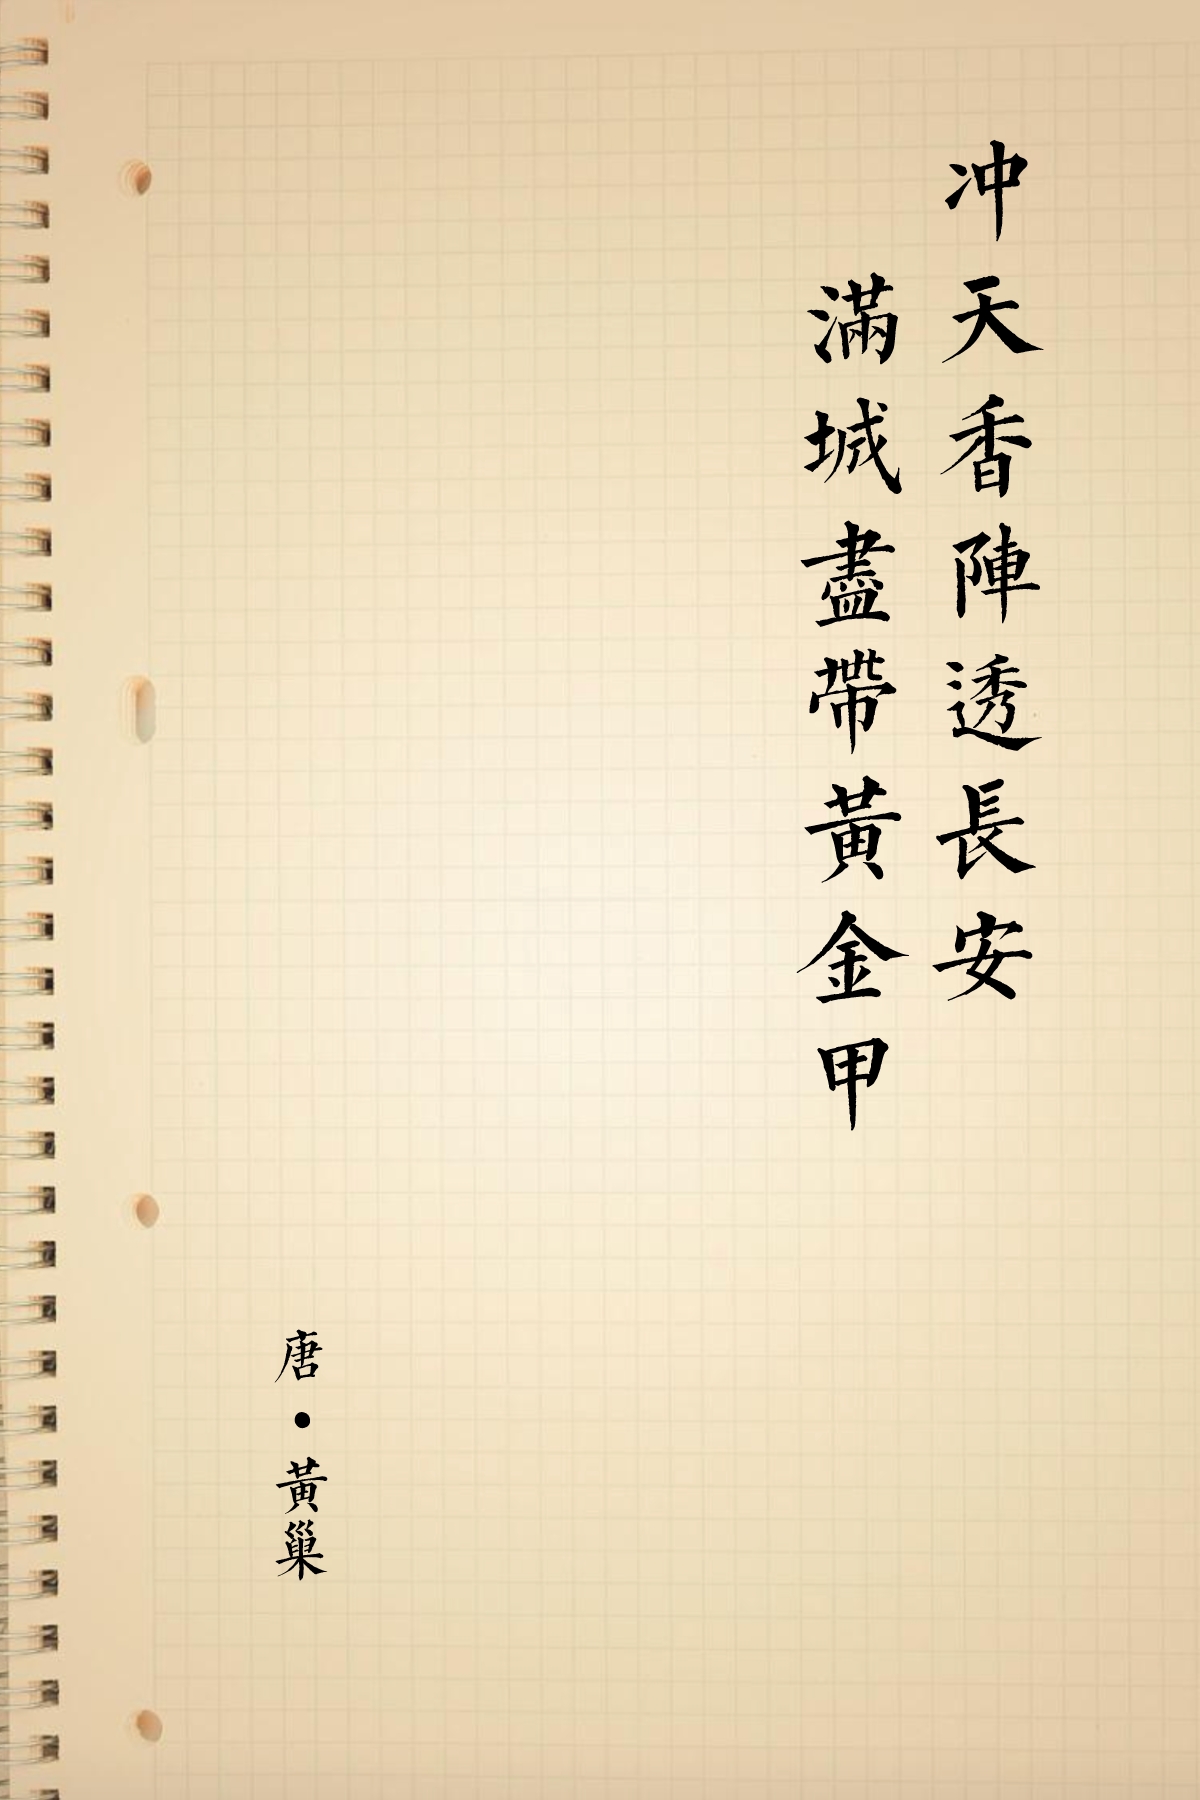 冲天香陣透長安
滿城盡帶黃金甲
唐•黃巢